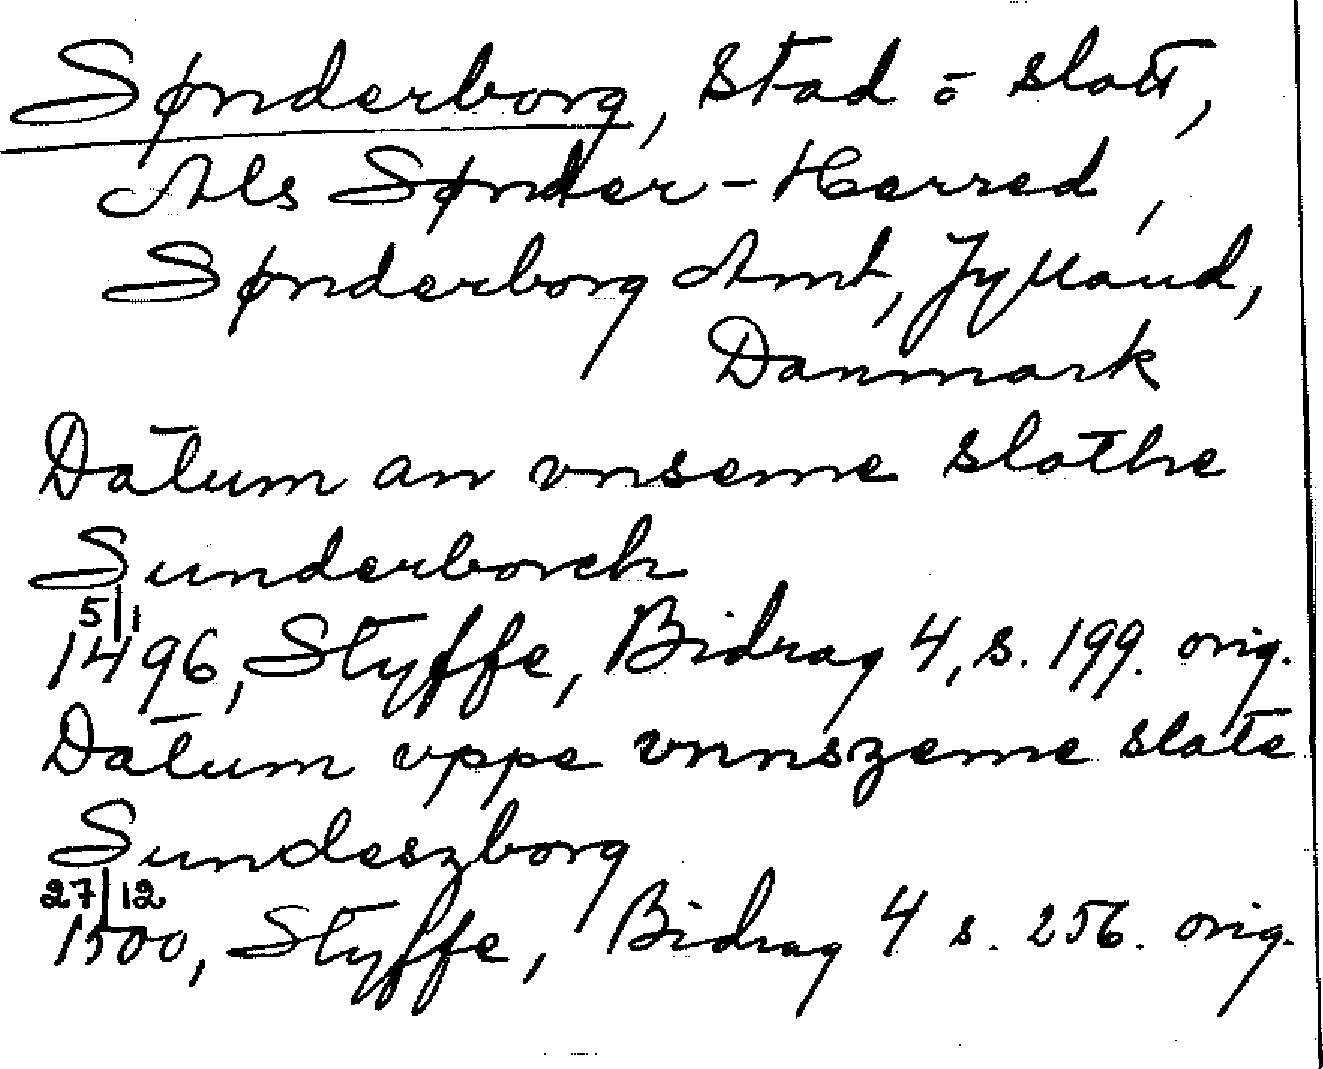 Sønderborg, stad o slott,
Als Sønder-Herred,
Sønderborg Amt, Jylland,
Danmark
Datum an vnseme slothe
Sunderborch
5/1
1496, Styffe, Bidrag 4, s. 199. orig.
Datum vppe vnnszeme slate
Sundeszborg
27/12
1500, Styffe, Bidrag 4 s. 256. orig.